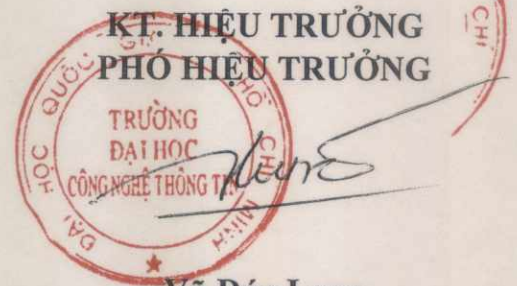 KT. HIỆU TRƯỞNG
PHÓ HIỆU TRƯỞNG
ĐẠI HỌC QUỐC GIA HỒ CHÍ MINH
TRƯỜNG
ĐẠI HỌC
CÔNG NGHỆ THÔNG TIN
CHÍ